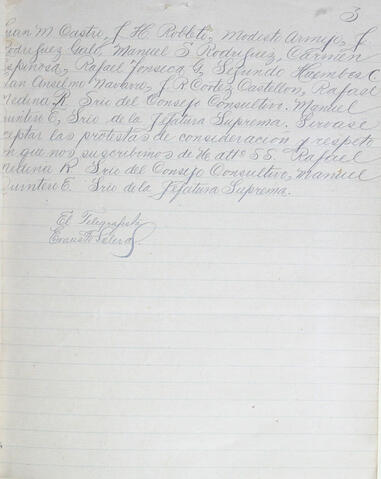 3
Juan M. Castro, J. H. Robleto, Modesto Armijo, J.
Rodriguez Galo, Manuel S. Rodriguez, Carmen
Espinosa, Rafael Fonseca G, Segundo Huembes C
Juan Anselmo Navarro, J R Cortez Castellon, Rafael
Medina R. Srio del Consejo Consultivo. Manuel
Quintero E, Srio de la Jefatura Suprema. Sirvase
ceptar las protestas de consideración y respeto
on que nos suscribimos de Ud atts SS. Rafael
Medina R Srio del Consejo Consultivo, Manuel
Quintero E. Srio de la Jefatura Suprema.
El Telegrafista
Ernesto